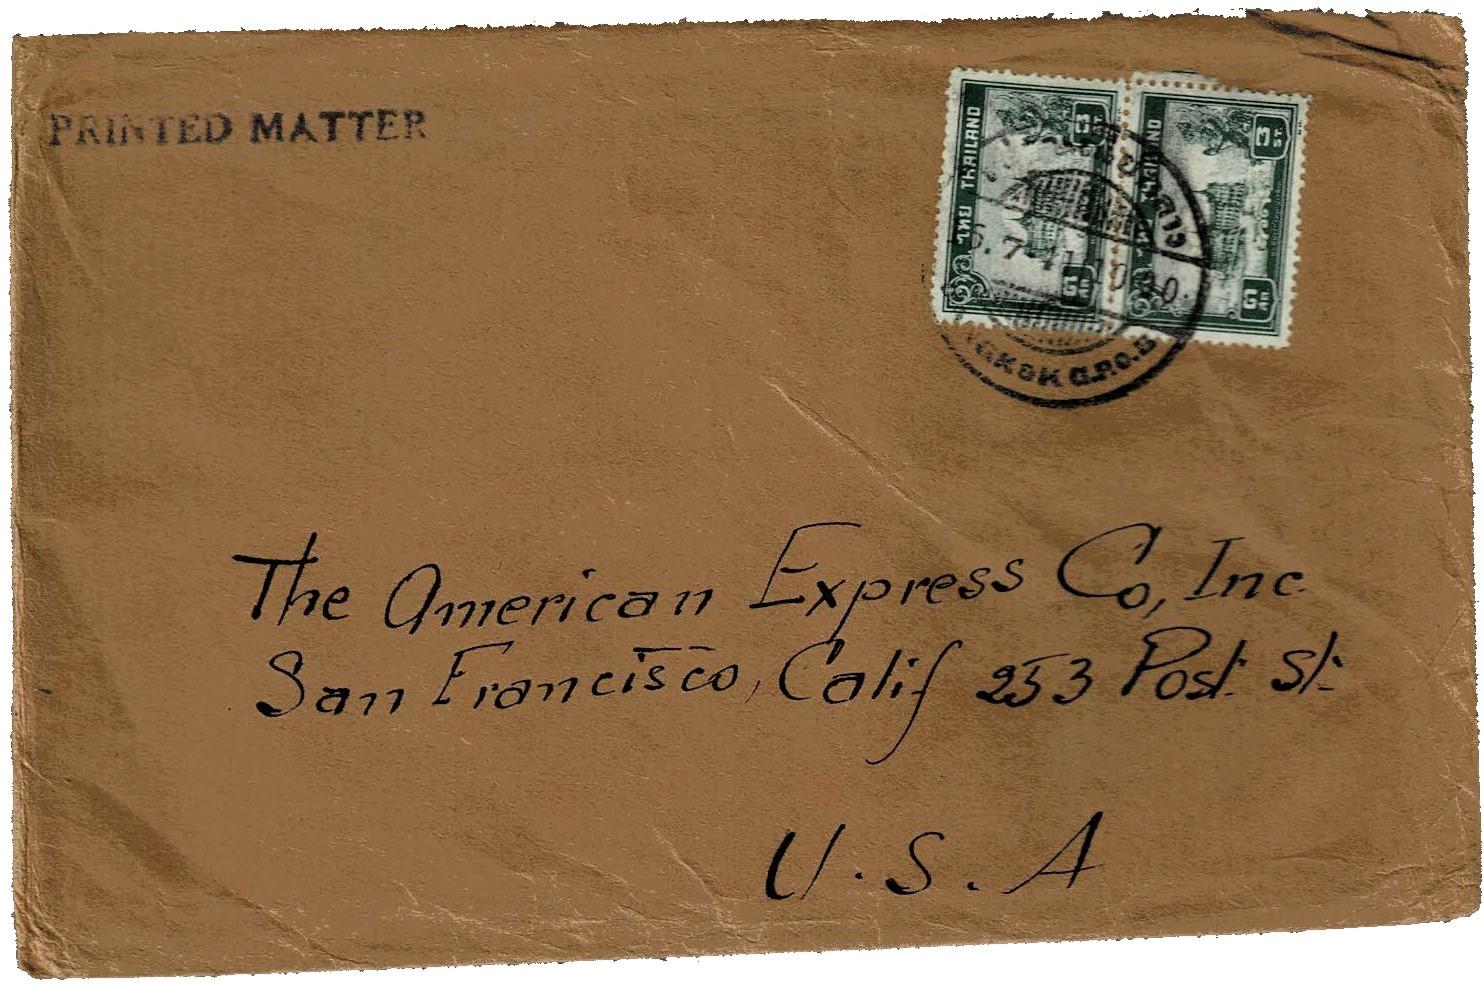 PRINTED MATTER
ไทย THAILAND
3
ST.
๓
สต.
THAILAND
3
ST.
๓
สต.
7-41
G.P.O.
The American Express Co, Inc.
San Francisco, Calif 253 Post. St.
U.S.A